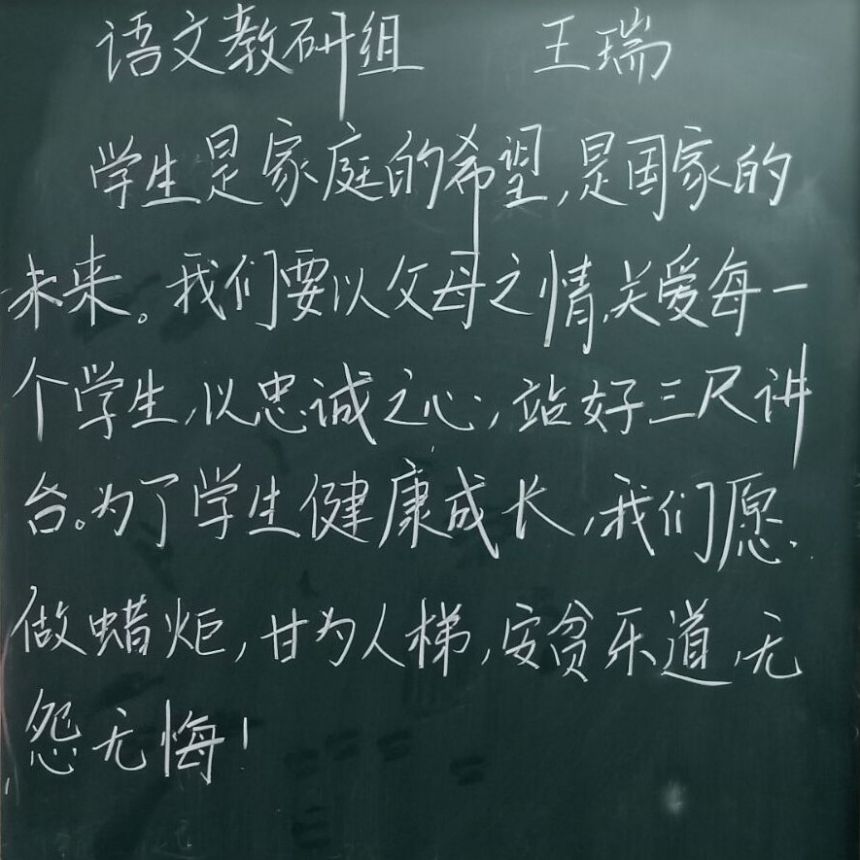 语文教研组 王瑞
学生是家庭的希望,是国家的
未来。我们要以父母之情,关爱每一
个学生,以忠诚之心,站好三尺讲
台。为了学生健康成长,我们愿
做蜡炬,甘为人梯,安贫乐道,无
怨无悔!